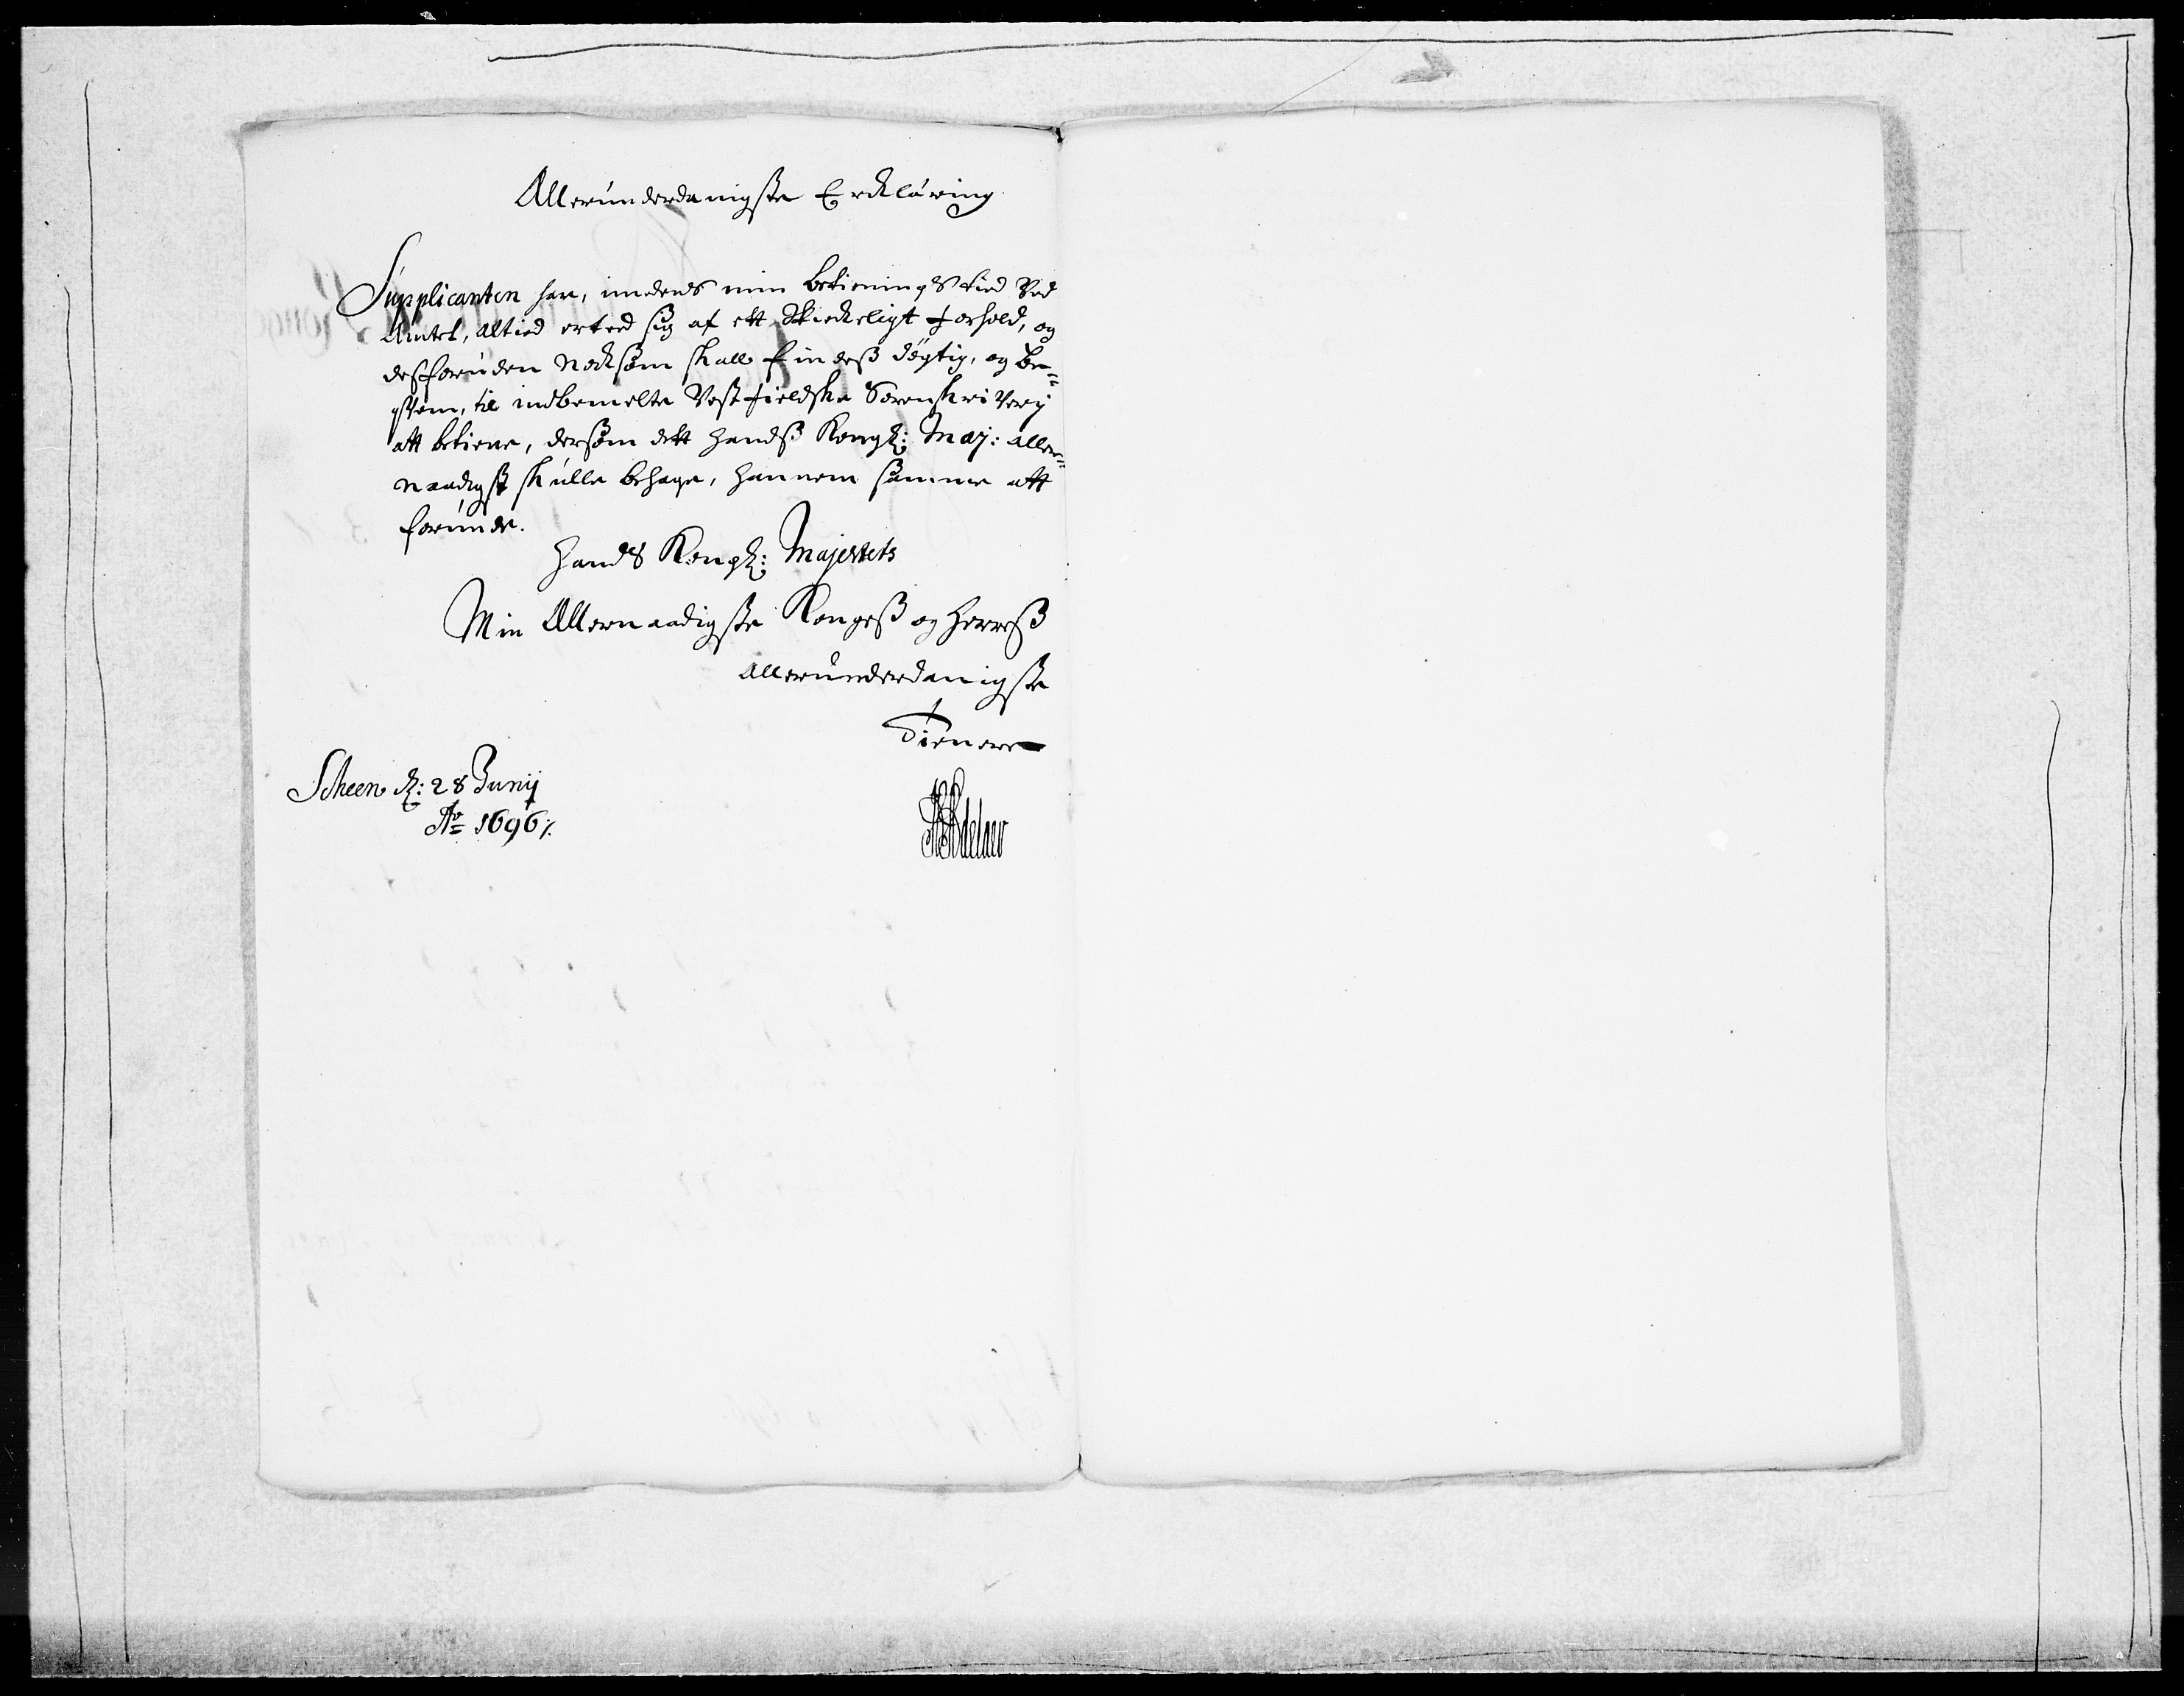 Allerunderdanigste Erklæring
Supplicanten har, imedens min betienings tid Ved
Amtet, altied erted sig af ett Skickeligt forhold, og
desforuden nocksom skall findeß døgtig, og be=
qvem, til indbemelte Vestfieldske Sorenskriverij
att betiene, dersom dett Handß Kongl: Maj: aller=
naadigst skulle behage, hannem samme att
forunde.
Hands Kongl: Majestets
Min Allernaadigste Kongeß og Herreß
allerunderdanigste
Tienere
Scheen d: 28 Junij
Ao 1696/.
Adelaer